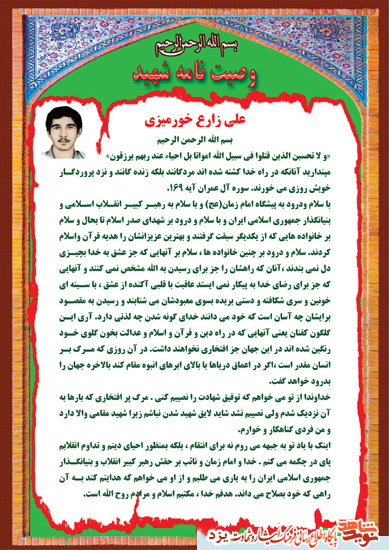 بسم الله الرحمن الرحیم
وصیت نامه شهید
علی زارع خورمیزی
بسم الله الرحمن الرحیم
«و لا تحسبن الذین قتلوا فی سبیل الله امواتا بل احیاء عند ربهم یرزقون»
مپندارید آنانکه در راه خدا کشته شده اند مردگانند بلکه زنده گانند و نزد پروردگار
خویش روزی می خورند. سوره آل عمران آیه ۱۶۹.
با سلام ودرود به پیشگاه امام زمان(عج) و با سلام به رهبر کبیر انقلاب اسلامی و
بنیانگذار جمهوری اسلامی ایران و با سلام و درود بر شهدای صدر اسلام تا بحال و سلام
بر خانواده هایی که از یکدیگر سبقت گرفتند و بهترین عزیزانشان را هدیه قرآن واسلام
کردند. سلام و درود بر چنین خانواده ها ، سلام بر آنهایی که جز عشق به خدا بچیزی
دل نمی بندند ، آنان که راهشان را جز برای رسیدن به الله مشخص نمی کنند و آنهایی
که جز برای رضای خدا به پیکار نمی ایستند عاقبت با قلبی آکنده از عشق ، با سینه ای
خونین و سری شکافته و دستی بریده بسوی معبودشان می شتابند و رسیدن به مقصود
برایشان چه آسان است که خود می دانند خدای گونه شدن چه لذتی دارد. آری این
گلگون کفنان یعنی آنهایی که در راه دین و قرآن و اسلام و عدالت بخون گلوی خود
رنگین شده اند در این جهان جز افتخاری نخواهند داشت. در آن روزی که مرگ بر
انسان مقدر است ،اگر در اعماق دریاها یا بالای ابرهای انبوه مقام کند بالاخره جهان را
بدرود خواهد گفت.
خداوندا از تو می خواهم که توفیق شهادت را نصیبم کنی . مرگ پر افتخاری که بارها به
آن نزدیک شدم ولی نصیبم نشد شاید لایق شهید شدن نباشم زیرا شهید مقامی والا دارد
و من فردی گناهکار و خوارم.
اینک با یاد تو به جبهه می روم نه برای انتقام ، بلکه بمنظور احیای دینم و تداوم انقلابم
پای در چکمه می کنم . خدا و امام زمان و نائب بر حقش رهبر کبیر انقلاب و بنیانگذار
جمهوری اسلامی ایران را به یاری می طلبم و از او می خواهم که هدایتم کند به آن
راهی که خود بصلاح می داند. هدفم خدا ، مکتبم اسلام و مرادم روح الله است.
نوید شاهد
پایگاه اطلاع رسانی فرهنگ ایثار و شهادت یزد